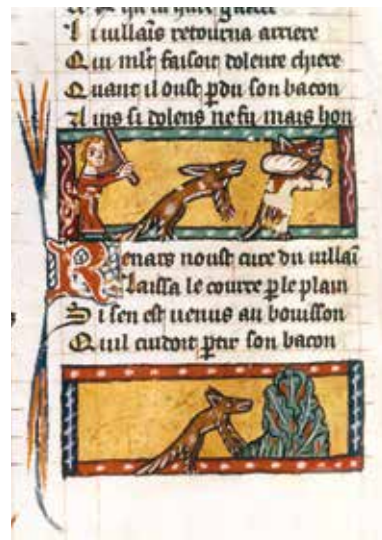 Li uillaĩs retourna arriere
Qui mlt faisoit dolente chiere
Quant il oust pdu son bacon
Ains si dolens ne fu mais hon
Renars noust cure du uillaĩ
Laissa le courre p le plain
Si sen est uenus au bouisson
Quil cuidoit ptir son bacon